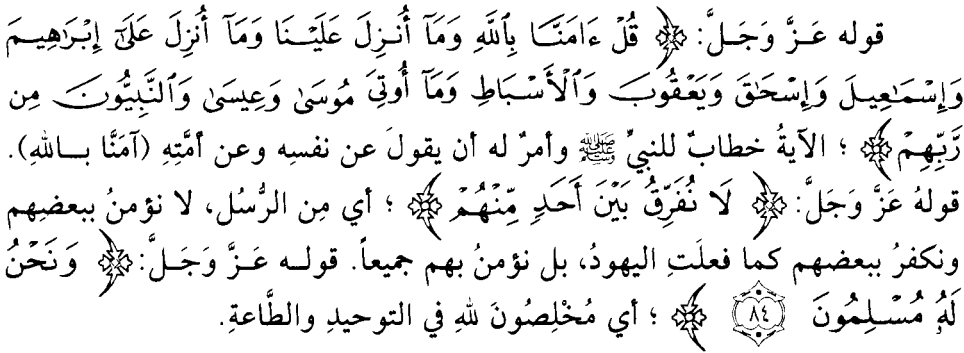 قوله عَزَّ وَجَلَّ: ﴿ قُلْ ءَامَنَّا بِٱللَّهِ وَمَآ أُنزِلَ عَلَيْنَا وَمَآ أُنزِلَ عَلَىٰٓ إِبْرَٰهِيمَ
وَإِسْمَٰعِيلَ وَإِسْحَٰقَ وَيَعْقُوبَ وَٱلْأَسْبَاطِ وَمَآ أُوتِيَ مُوسَىٰ وَعِيسَىٰ وَٱلنَّبِيُّونَ مِن
رَّبِّهِمْ ﴾ ؛ الآيةُ خطابٌ للنبيِّ ﷺ وأمرٌ له أن يقولَ عن نفسِه وعن أمَّتِهِ (آمَنَّا بـاللهِ).
قولهُ عَزَّ وَجَلَّ: ﴿ لَا نُفَرِّقُ بَيْنَ أَحَدٍ مِّنْهُمْ ﴾ ؛ أي مِن الرُّسُل، لا نؤمنُ ببعضِهم
ونكفرُ ببعضهم كما فعلَتِ اليهودُ، بل نؤمنُ بهم جميعاً. قولـه عَـزَّ وَجَـلَّ: ﴿ وَنَحْنُ
لَهُۥ مُسْلِمُونَ ٨٤ ﴾ ؛ أي مُخْلِصُونَ للهِ في التوحيدِ والطَّاعةِ.